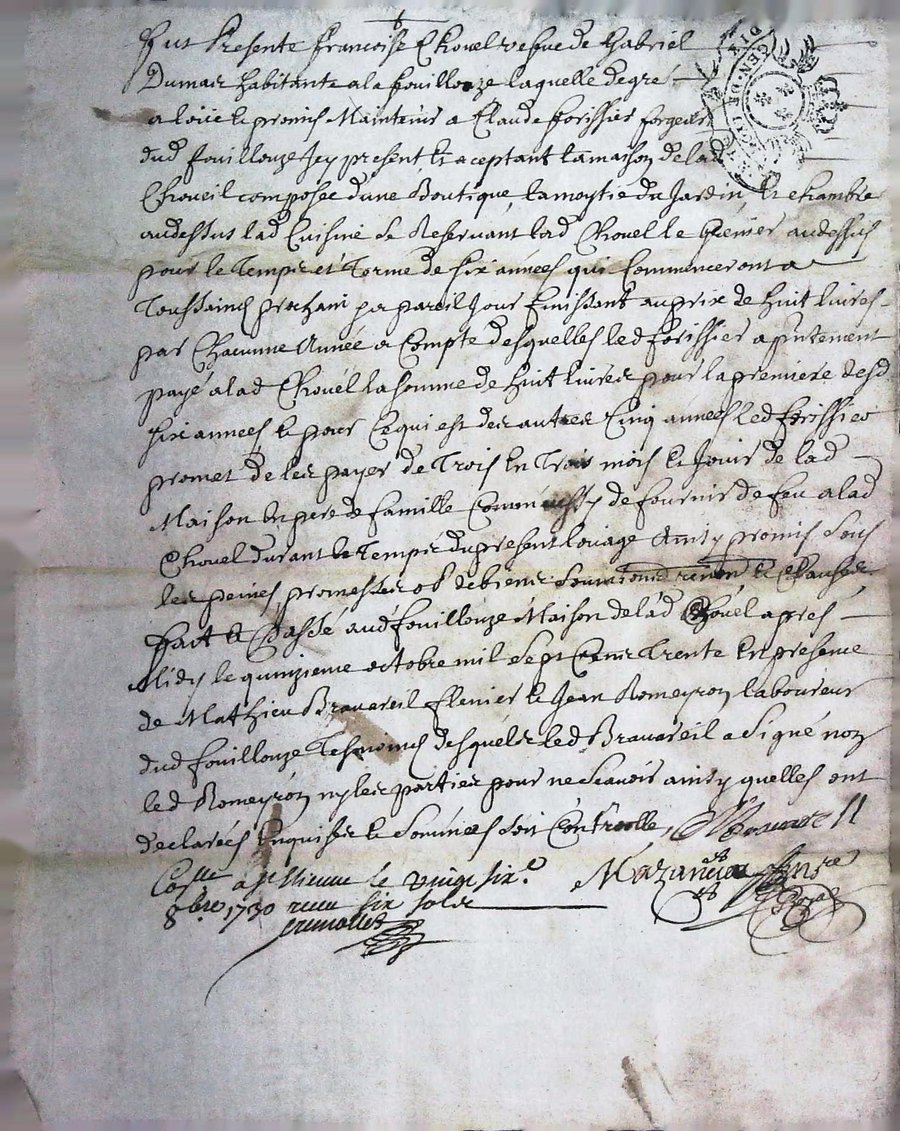 Fut Presente francoise Chovel vefve de Gabriel
Dumas habitante a la fouillouze laquelle de gré
a loüé et promis Maintenir a Claude forissier forgeur
dud fouillouze Jcy present et aceptant La maison de lad
Choveil composée dune Boutique, la moytie du Jardin, et chambre
au dessus lad Cuisine Se Reservant lad Chovel le Grenier au dessus
pour le Temps et Terme de six années qui Commenceront a
Toussaincs prochain pr pareil Jour finissant au prix de huit livres
par Chacunne Année a Compte desquelles led forissier a
payé a lad Chovel la somme de huit livres pour la premiere desd
six années et pour Ce qui est des autres Cinq années led forissier
promet de les payer de Trois En Trois mois et Jouir de lad
Maison En pere de famille Comme de fournir de feu a lad
Chovel durant le Temps du present louage Ainsy promis sous
les peines, promesses ob de biens soumissions renon et Clauses
fait et Passé aud fouillouze Maison de lad Chovel apres
Midy le quinzieme octobre mil Sept Cens Trente En presence
de Mathieu Bravareil et Jean Romeyron laboureur
dud fouillouze Tesmoins desquels led Bravareil a Signé non
led Romeyron ny les parties pour ne Scavoir ainsy quelles ont
declarées Enquises et Sommées soit Controollé,
Colle a st Etienne le vingt six.e
8bre 1730 receu six sols